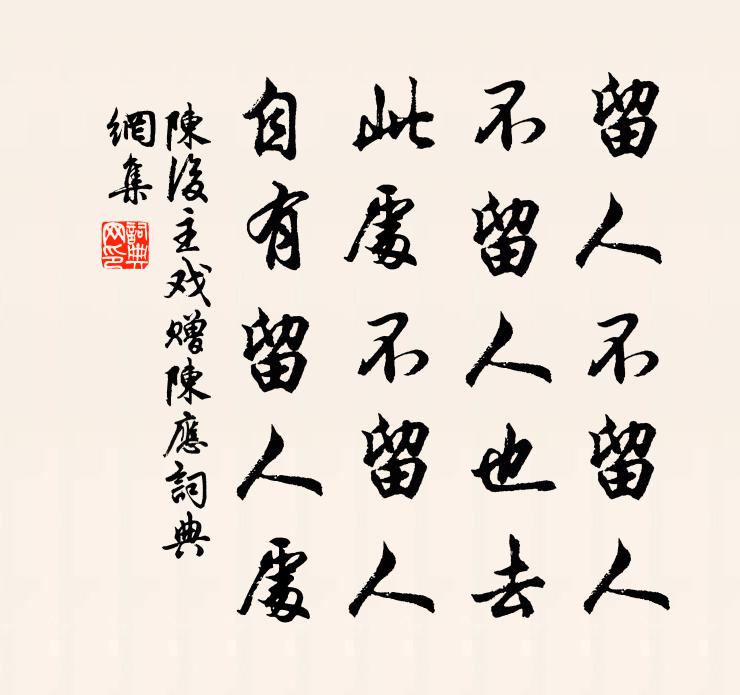 留人不留人
不留人也去
此處不留人
自有留人處
陳後主戏赠陳應詞典
網集
詞典
网印